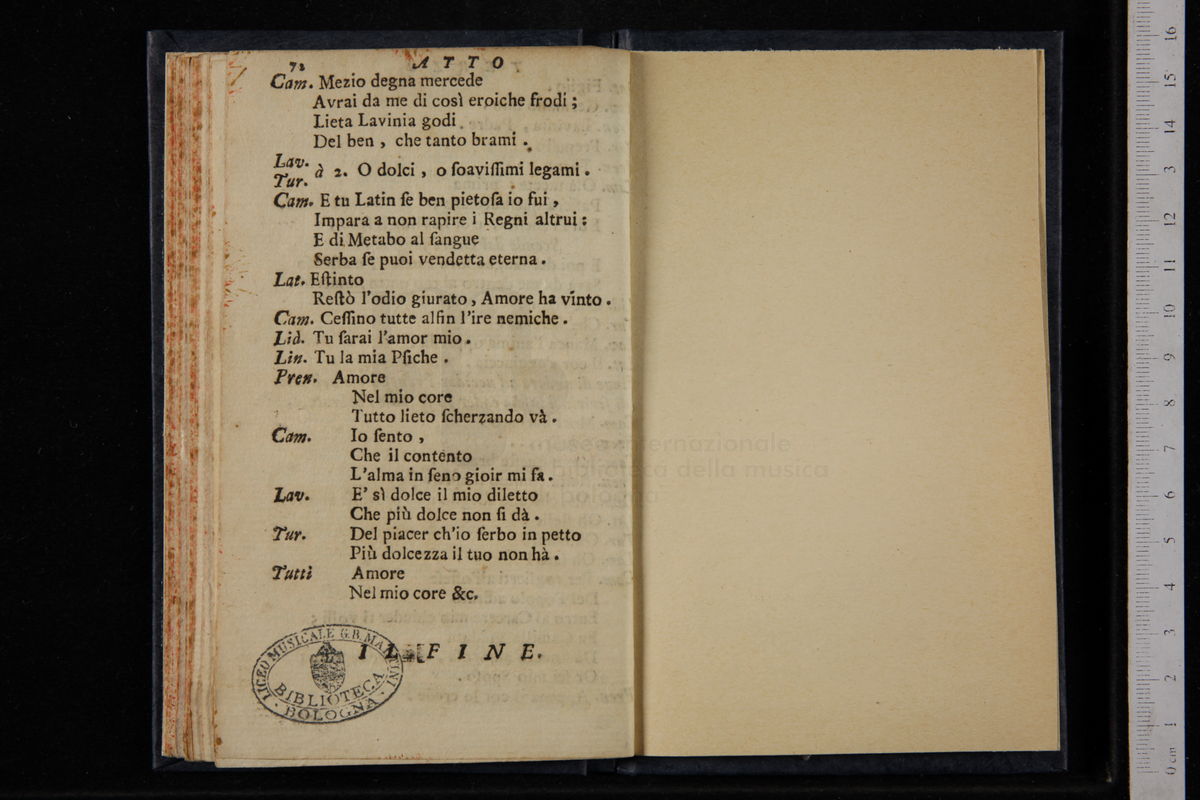 72 ATTO
Cam. Mezio degna mercede
Avrai da me di così eroiche frodi ;
Lieta Lavinia godi .
Del ben , che tanto brami .
Lav.
Tur. à 2. O dolci , o ſoaviſſimi legami .
Cam. E tu Latin ſe ben pietoſa io fui ,
Impara a non rapire i Regni altrui :
E di Metabo al ſangue
Serba ſe puoi vendetta eterna .
Lat. Eſtinto
Reſtò l'odio giurato , Amore ha vinto .
Cam. Ceſſino tutte alfin l'ire nemiche .
Lid. Tu ſarai l'amor mio .
Lin. Tu la mia Pſiche .
Pren. Amore
Nel mio core
Tutto lieto ſcherzando và .
Cam. Io ſento ,
Che il contento
L'alma in ſeno gioir mi fa .
Lav. E' sì dolce il mio diletto
Che più dolce non ſi dà .
Tur. Del piacer ch'io ſerbo in petto
Più dolcezza il tuo non hà .
Tutti Amore
Nel mio core &c.
IL FINE.
LICEO MUSICALE G.B. MARTINI
BIBLIOTECA
BOLOGNA
museo internazionale
biblioteca della musica
bologna
0 cm 1 2 3 4 5 6 7 8 9 10 11 12 13 14 15 16